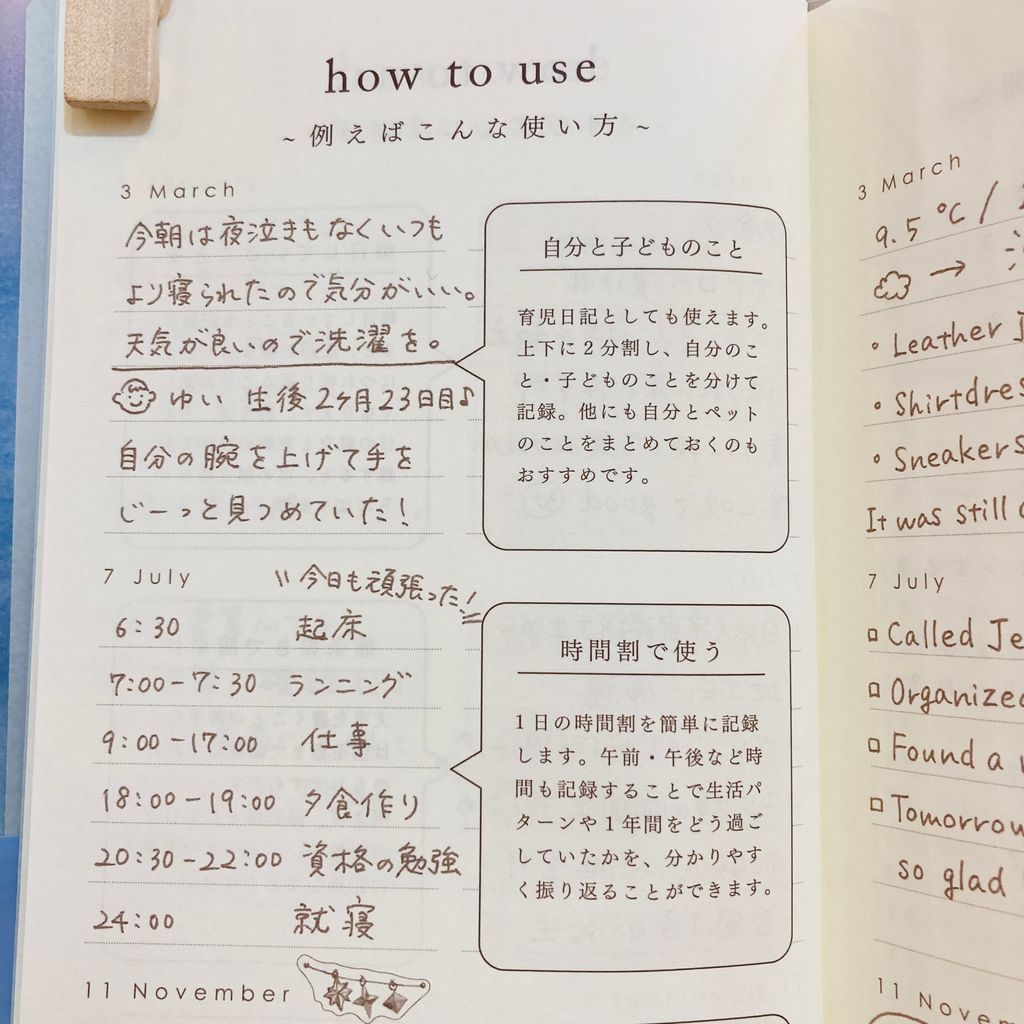 how to use
~ 例えばこんな使い方 ~
3 March
今朝は夜泣きもなくいつも
より寝られたので気分がいい。
天気が良いので洗濯を。
ゆい 生後2ヶ月23日目♪
自分の腕を上げて手を
じーっと見つめていた!
自分と子どものこと
育児日記としても使えます。
上下に2分割し、自分のこ
と・子どものことを分けて
記録。他にも自分とペット
のことをまとめておくのも
おすすめです。
7 July
今日も頑張った!
6:30 起床
7:00-7:30 ランニング
9:00-17:00 仕事
18:00-19:00 夕食作り
20:30-22:00 資格の勉強
24:00 就寝
時間割で使う
1日の時間割を簡単に記録
します。午前・午後など時
間も記録することで生活パ
ターンや1年間をどう過ご
していたかを、分かりやす
く振り返ることができます。
11 November
3 March
9.5℃ /
→
• Leather
• Shirtdres
• Sneakers
It was still
7 July
□ Called Je
□ Organized
□ Found a
□ Tomorrow
so glad
11 Novem